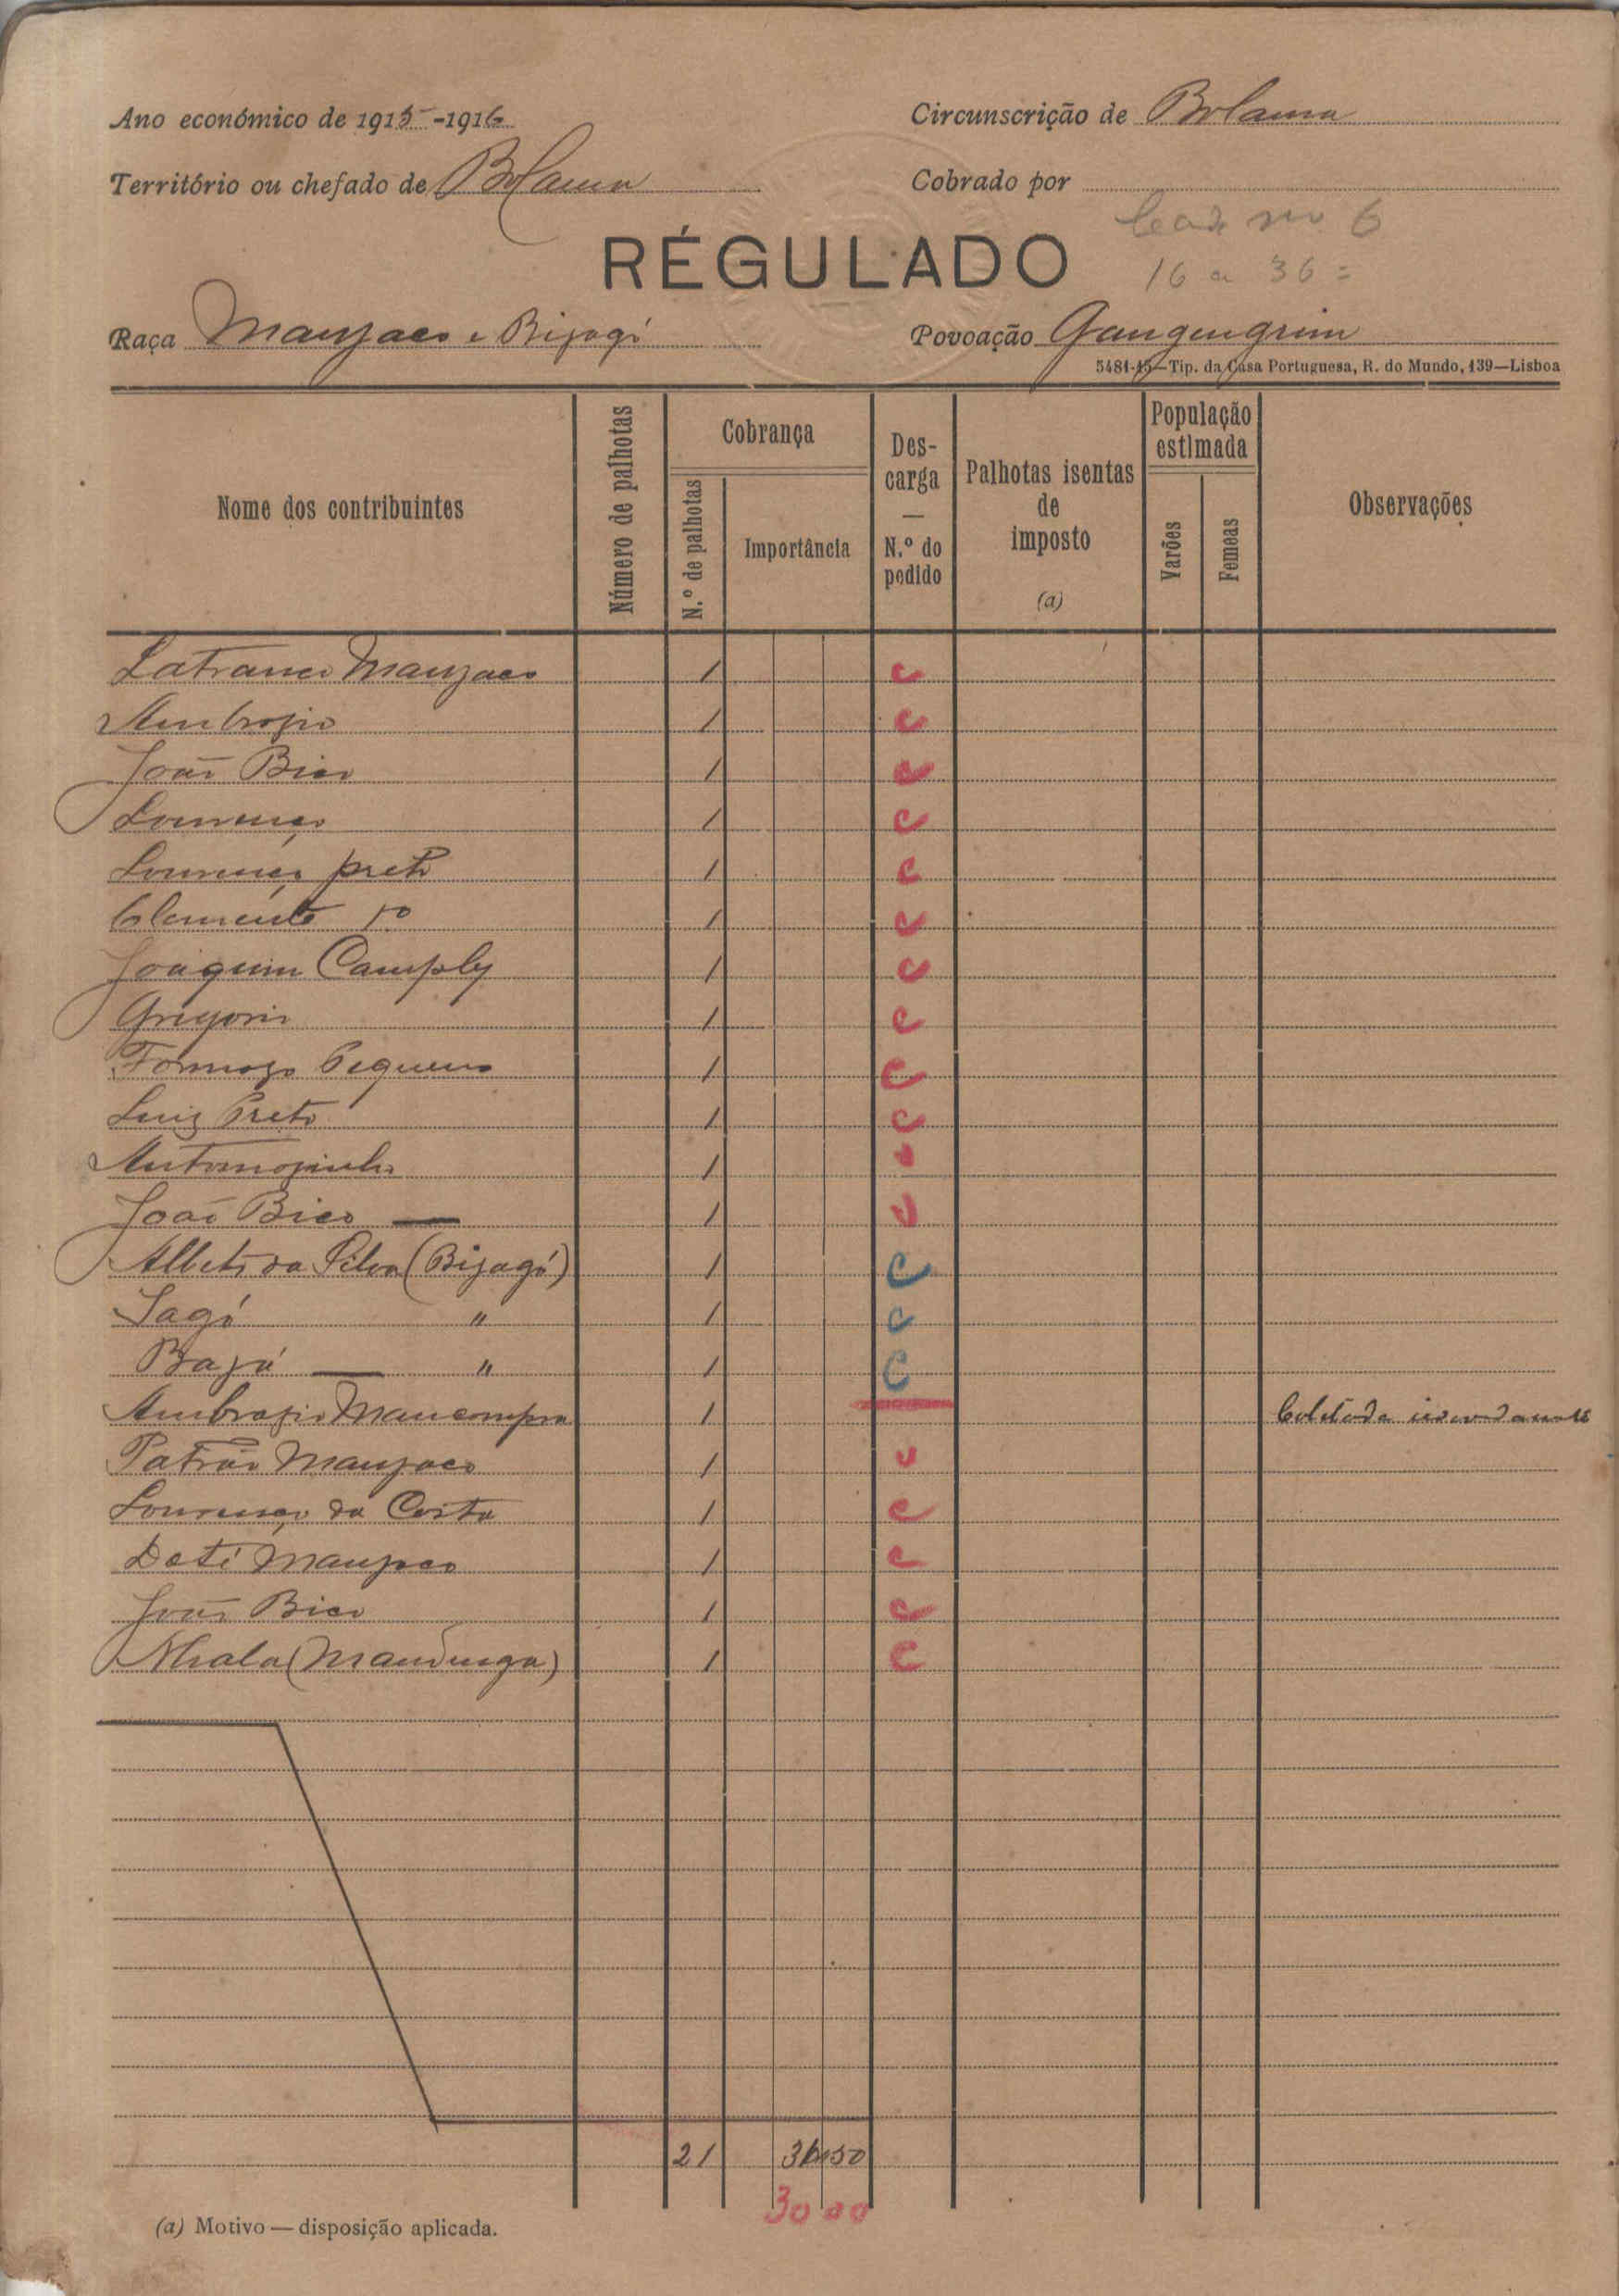 Ano económico de 1915-1916 Circunscrição de Bolama
Território ou chefado de Bolama Cobrado por
RÉGULADO
16 a 36 =
Raça Manjaco e Bijagó Povoação Gangengrim
5481-15—Tip. da Casa Portuguesa, R. do Mundo, 139—Lisboa
Nome dos contribuintes Número de palhotas Cobrança N.º de palhotas Importância Descarga — N.º do pedido Palhotas isentas de imposto (a) População estimada Varões Femeas Observações
Manjaco 1 c
Ambrozio 1 c
João Bico 1 c
Lourenço 1 c
Lourenço preto 1 c
Clemente 1 c
Joaquim Camply 1 c
Gregorio 1 c
Formozo Pequeno 1 c
Luiz Preto 1 c
Antoniosinho 1
João Bico — 1
Alberto da Silva (Bijagó) 1 c
Sagó " 1 c
Bajú — " 1 c
Ambrozio Mancompra 1
Patrão Manjaco 1
Lourenço da Costa 1 c
Dotí Manjaco 1 c
João Bico 1 c
Nhala (Mandinga) 1 c
21 50
30 00
(a) Motivo — disposição aplicada.